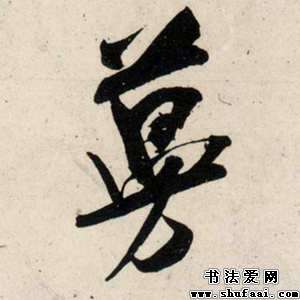 募
书法爱网
www.shufaai.com